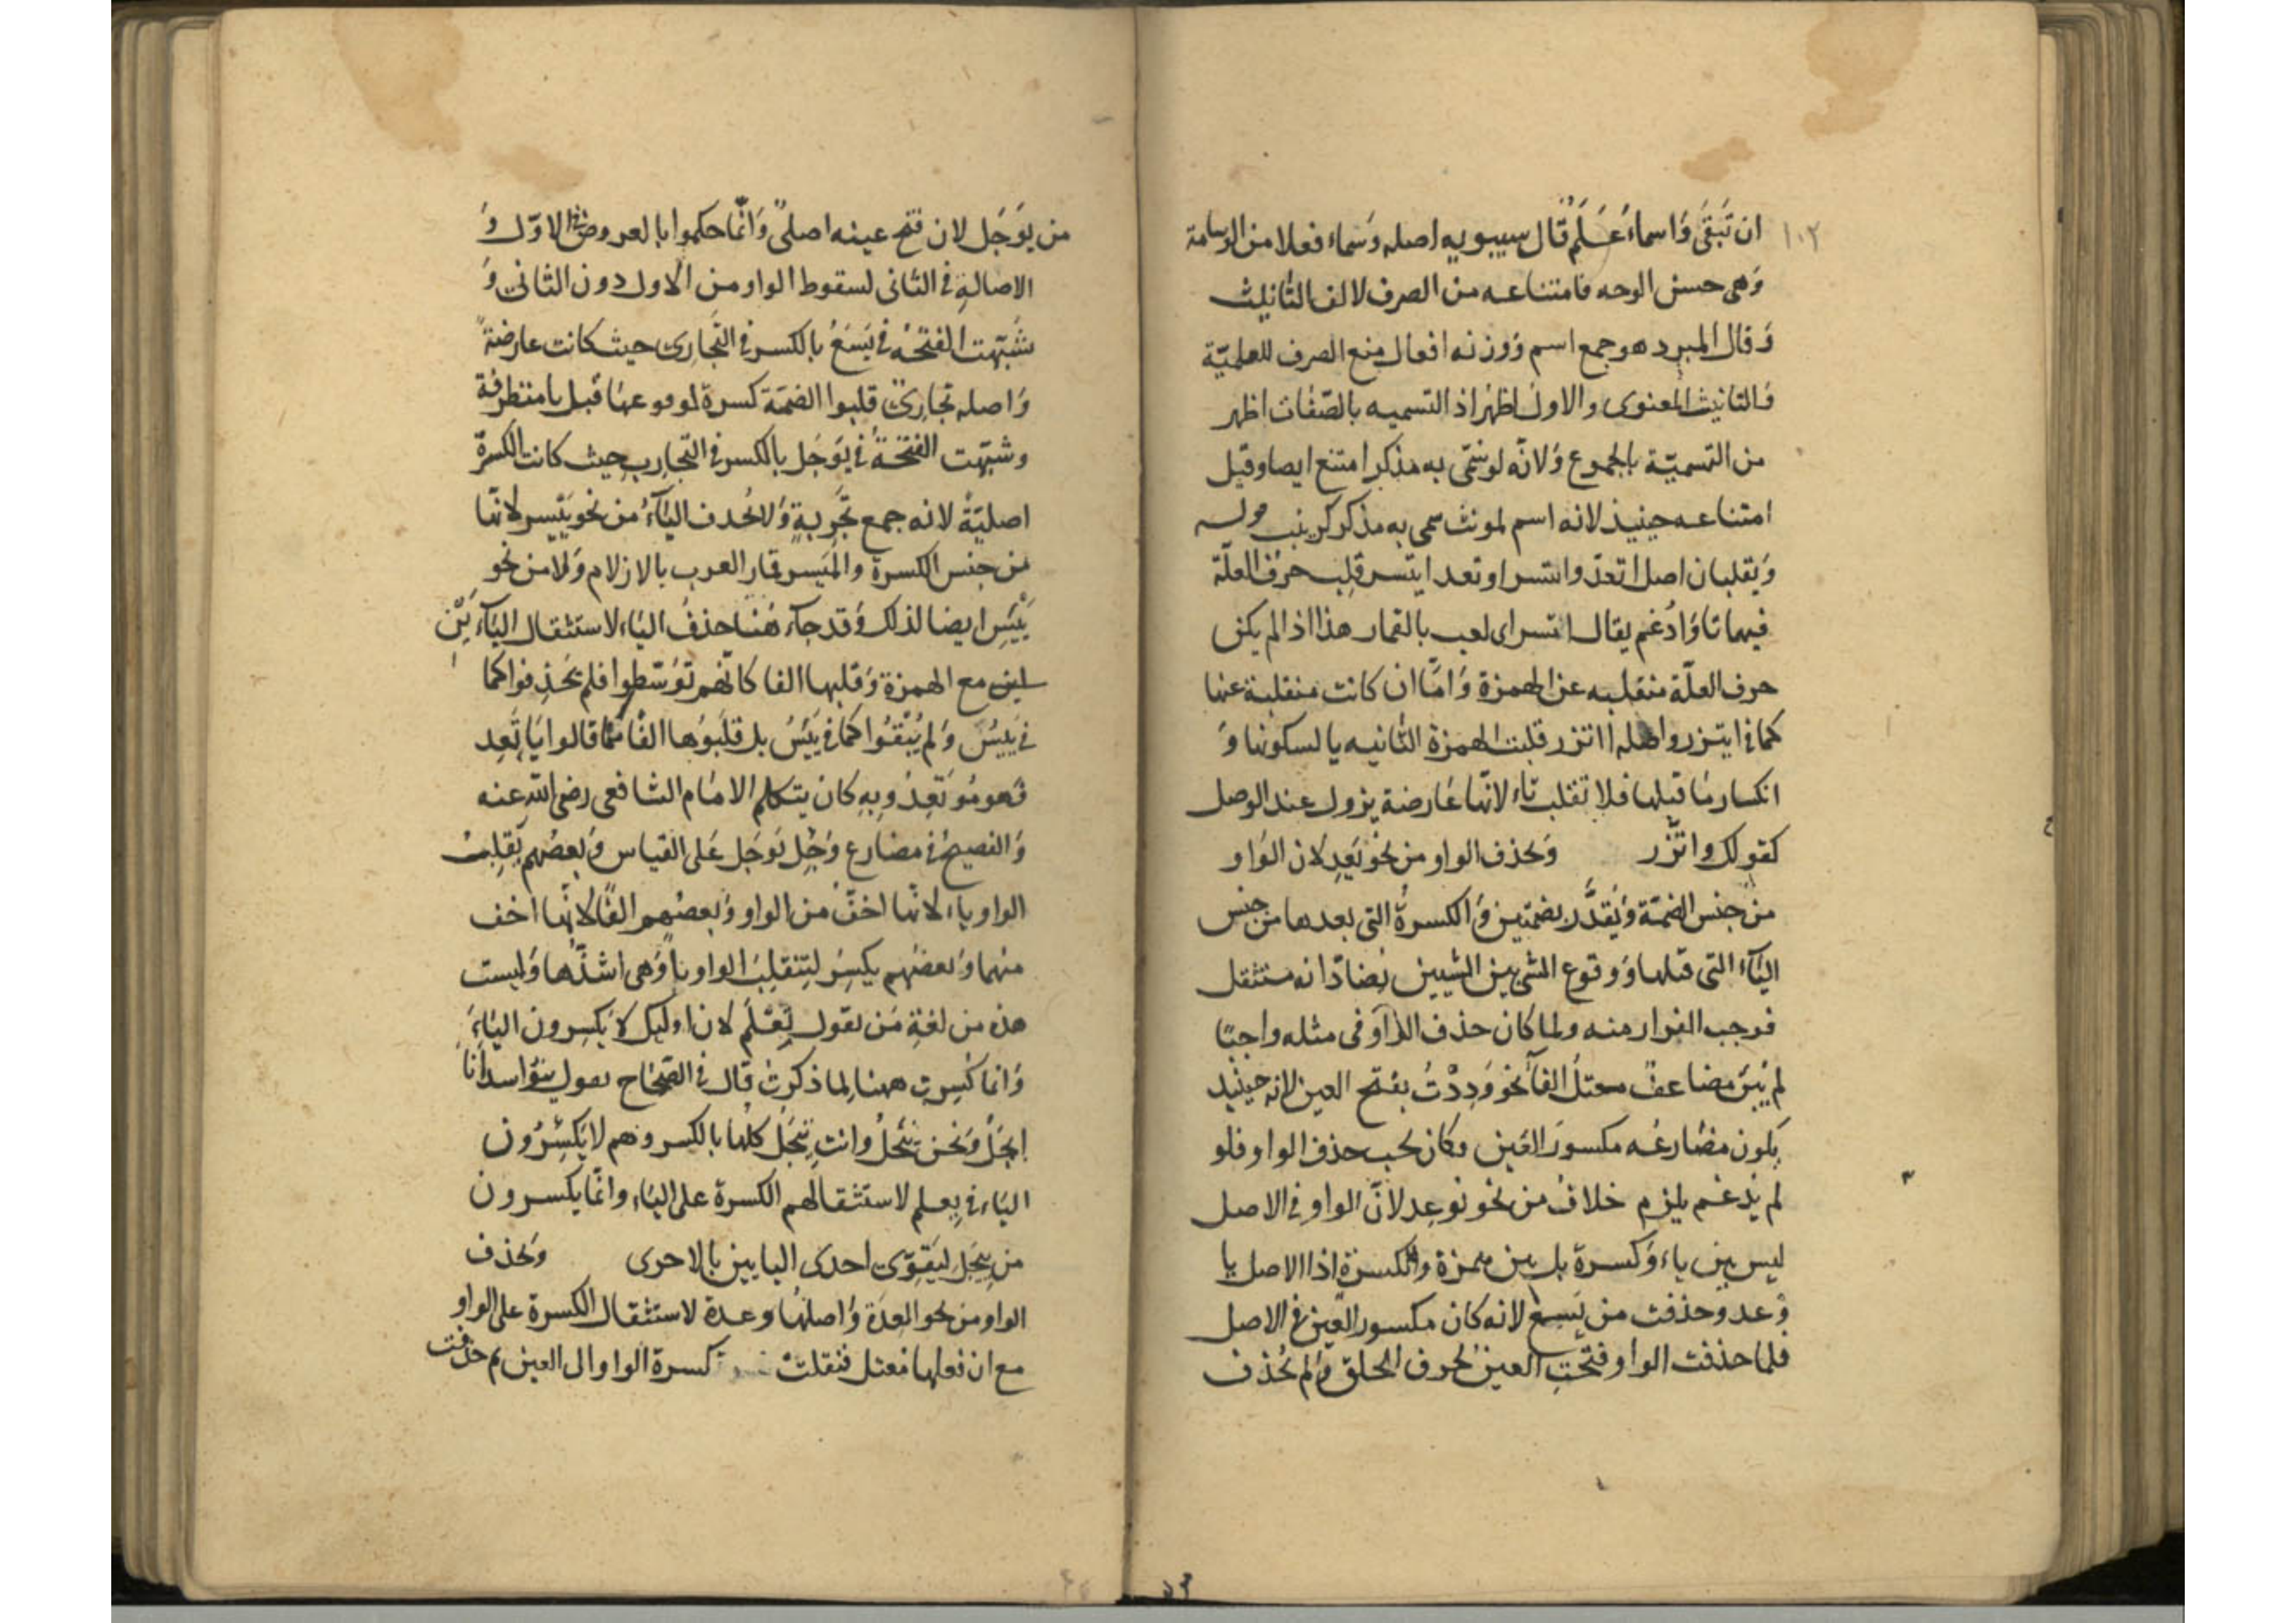 ١٠٢
ان تَبقَى وَاسماءُ عَلَمٌ قال سيبويه اصله وَسماء فعلا من الوسامة
وَهى حسن الوجه فامتناعه من الصرف لالف التانيث
وَقال المبرد هو جمع اسم وَوزنه افعال منع الصرف للعلميّة
وَالتانيث المعنوى والاول اظهر اذ التسميه بالصّفات اظهر
من التسميّة بالجموع وَلانّه لو سُمّى به مذكر امتنع ايضا وقيل
امتناعه حينيذ لانه اسم لمونث سمى به مذكر كزينب قوله
وَيقلبان اصل اتعد واتسر اوتعد ايتسر قلِب حرف العلّة
فيهما تا وَادُغم يقال اتسر اى لعب بالقمار هذا اذا لم يكن
حرف العلّة منقلبه عن الهمزة وَامَّا ان كانت منقلبة عنها
كما فى ايتزر واصله اأتزر قلبت الهمزة الثانيه يا لسكونها وَ
انكسار مَا قبلها فلا تقلب تاء لانّها عَارضة يزول عند الوصل
كقولك واتّزر وَتحذف الواو من نحو يَعِد لان الوَاو
من جنس الضمّة وَيُقدَّر بضمّتين وَالكسرة التى بعدها من جنس
اليَآء التى قبلها وَوقوع الشى بين الشيين يضادّانه مستثقل
فوجب الفرار منه ولما كان حذف الوَاو فى مثله واجبًا
لم يُبنَ مضاعف معتلُ الفآ نحو وَدِدْتُ بفتح العين لانه حينيذ
يكون مضَارعُه مكسورَ العَين وكان يجب حذف الواو فلو
لم يُدغم يلزم خلاف من نحو نوعِد لانّ الواو فى الاصل
ليس بين ياء وَكسرة بل بين همزة والكسرة اذا الاصل يا
وَعد وحذفت من يَسع لانه كان مكسور العين فى الاصل
فلما حذفت الواو فتحتِ العين لحرف الحلق وَلم تُحذف
٥٣
من يَوجَل لان فتح عينه اصلىٌ وَانّما حكموا بالعروض فى الاوّل وَ
الاصالةِ فى الثانى لسقوط الواو من الاول دون الثانى وَ
شُبّهت الفتحُه فى يَسَعُ بالكسر فى التَّجارِى حيث كانت عارضةً
وَاصله تجارىٌ قلبوا الضمّة كسرة لوقوعها قبل يا متطرفة
وشبّهت الفتحُة فى يَوجَل بالكسر فى التّجارِب حيث كانت الكسرة
اصليّةً لانه جمع تَجرِبةٍ وَلا تُحذف اليَآءُ من نحو يَيسر لانّها
من جنس الكسرة والمَيسر قمار العرب بالازلام وَلا من نحو
يَيْئِس ايضا لذلك وَقد جآء هُنا حذفُ اليَاء لاستثقال اليَآءَيْنِ
مع الهمزة وَقلبها الفا كانّهم توَسّطوا فلم يَحذِفوا كما
فى يَيسُ وَلم يُبْقُوا كما فى يَيئسُ بل قلبُوها الفًا كما قالوا يَا تَعِد
فهو مُوتَعِدٌ وبِهِ كان يتكلم الامَام الشافعى رضى الله عنه
وَالفصيحُ فى مضارع وَجِل يَوجَل عَلى القياس وَبعضُهم يَقلِب
الواو ياء لانّها اخفّ من الواو وَبعضُهم الفًا لانّها اخف
منهما وَبعضُهم يكسِرُ لتنقلبَ الواو ياً وَهى اشذّها وَليست
هذه من لغةِ مَن يقول تِعْلَم لان اوليك لا يكسِرون اليَاءَ
وَانما كُسِرت ههنا لما ذكرتُ قال فى الصّحَاح يقول بنوا اسد انا
اِيجَلُ وَنحن نِيجَلُ وانت تِيجَلُ كلها بالكسر وَهم لا يَكسِرُون
اليَاء فى يعلم لاستثقالهم الكسرة على اليَاء وانّما يكسرون
من يِيجَل ليَقوَى احدى اليايين بالاخرى وَتحذف
الواو من نحو العِدَة وَاصلهَا وعدة لاستثقال الكسرة على الواو
مع ان فعلها معتل فنقلت كسرة الواو الى العين ثم حذفت